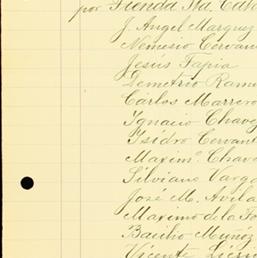 por Tienda Sta.
J. Angel Marquez
Nemesio Cervan
Jesus Tapia
Demetrio Rame
Carlos Marrero
Ignacio Chave
Isidro Cervant
Maximo Chav
Silviano Varga
José M. Avila
Maximo de la
Basilio Muñoz
Vicente